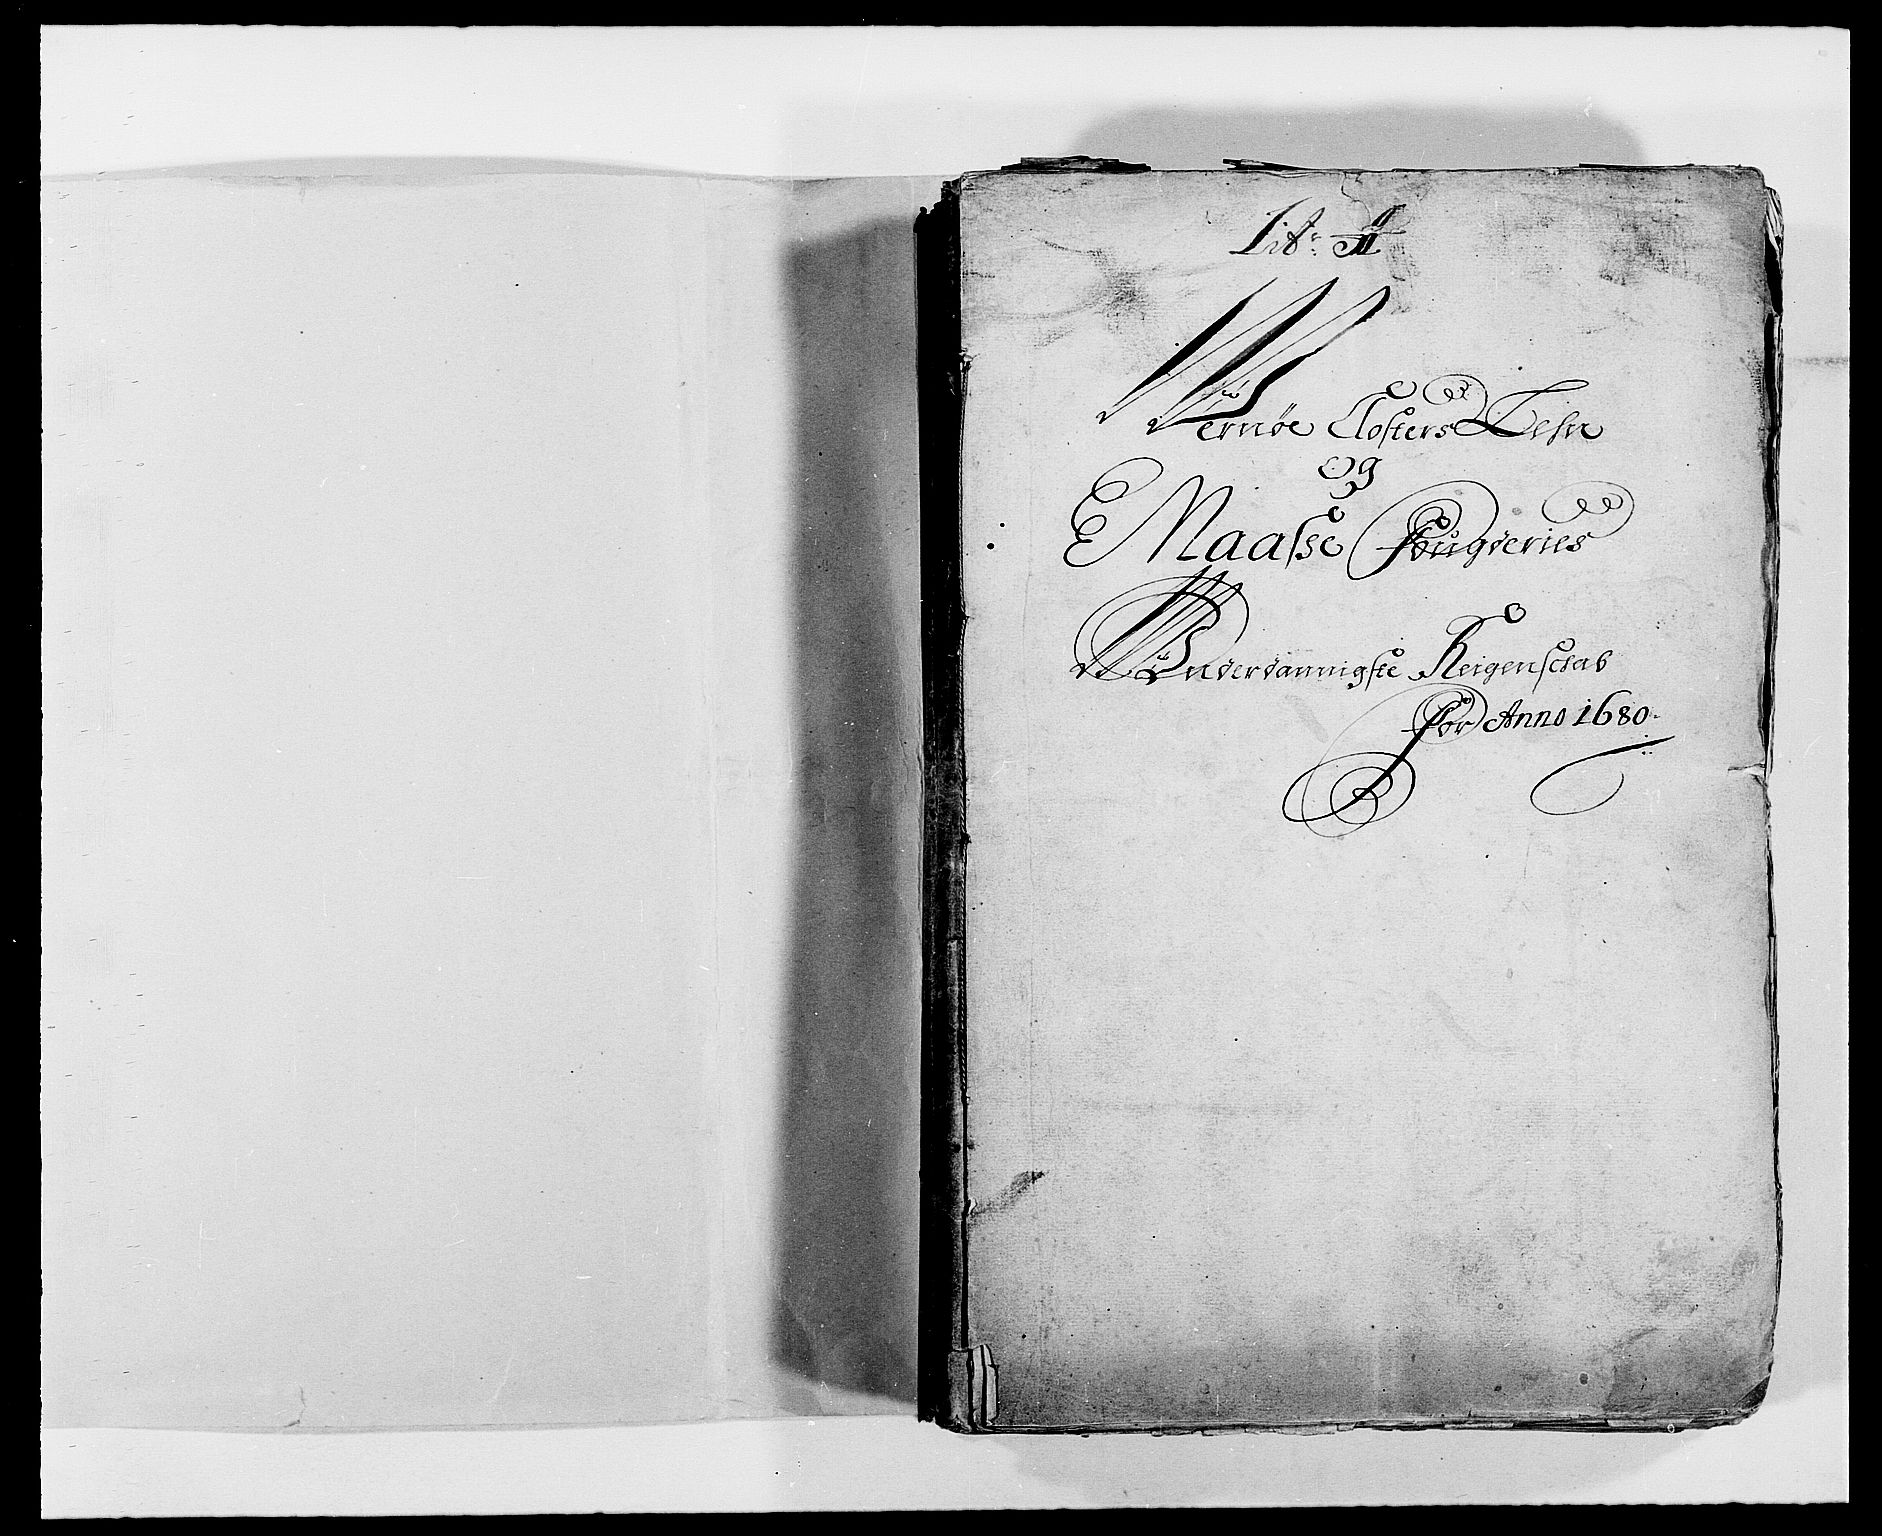 Lit: A
Wernøe Closters Lehn
og
Maasse Fougderies
Underdannigste Reigenschab
For Anno 1680